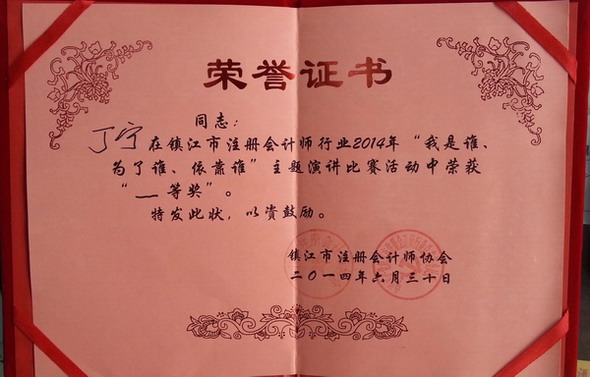 荣誉证书
同志：
丁宁 在镇江市注册会计师行业2014年“我是谁、
为了谁、依靠谁”主题演讲比赛活动中荣获
“一等奖”。
特发此状，以资鼓励。
镇江市注册会计师协会
二〇一四年六月三十日